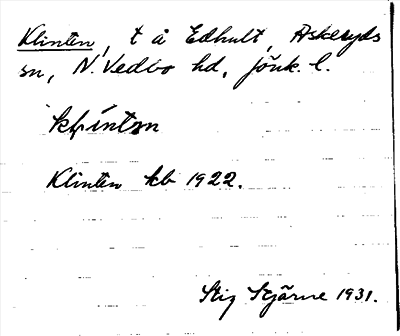 Klinten, t å Edhult, Askeryds
sn, N. Vedbo hd, Jönk. l.
Klinten kb 1922.
Stig Stjärne 1931.